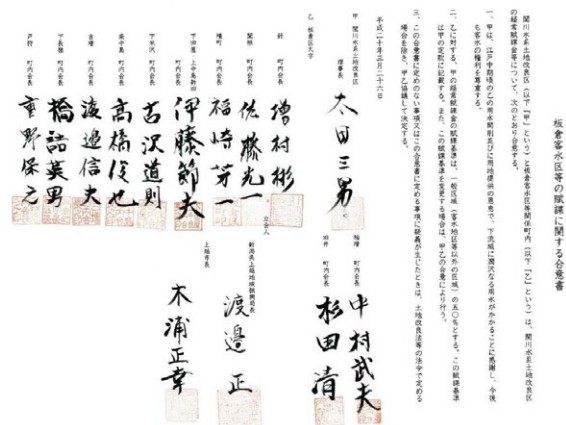 板倉客水区等の賦課に関する合意書
関川水系土地改良区(以下「甲」という)と板倉客水区等関係町内(以下「乙」という)は、関川水系土地改良区
の経常賦課金等について、次のとおり合意する。
一、甲は、江戸中期頃の乙の用水開削並びに用地提供の恩恵で、下流域に潤沢なる用水がかかることに感謝し、今後
も客水の権利を尊重する。
二、乙に対する、甲の経常賦課金の賦課基準は、一般区域(客水地区等以外の区域)の五〇%とする。この賦課基準
は甲の定款に記載する。また、この賦課基準を変更する場合は、甲乙の合意により行う。
三、この合意書に定めのない事項又はこの合意書に定める事項に疑義が生じたときは、土地改良法等の法令で定める
場合を除き、甲乙協議して決定する。
平成二十年三月二十六日
甲 関川水系土地改良区
理事長 太田三男
乙 板倉区大字
稲増 町内会長 中村武夫
田井 町内会長 杉田清
針 町内会長 増村彬
関根 町内会長 佐藤光一
曽根 町内会長 福崎芳一
下田屋・上中島新田 町内会長 伊藤節夫
下米沢 町内会長 古沢道則
南中島 町内会長 高橋俊也
吉増 町内会長 渡邉信夫
下長嶺 町内会長 橋詰英男
戸狩 町内会長 重野保之
立会人
新潟県上越地域振興局長 渡邉正
上越市長 木浦正幸